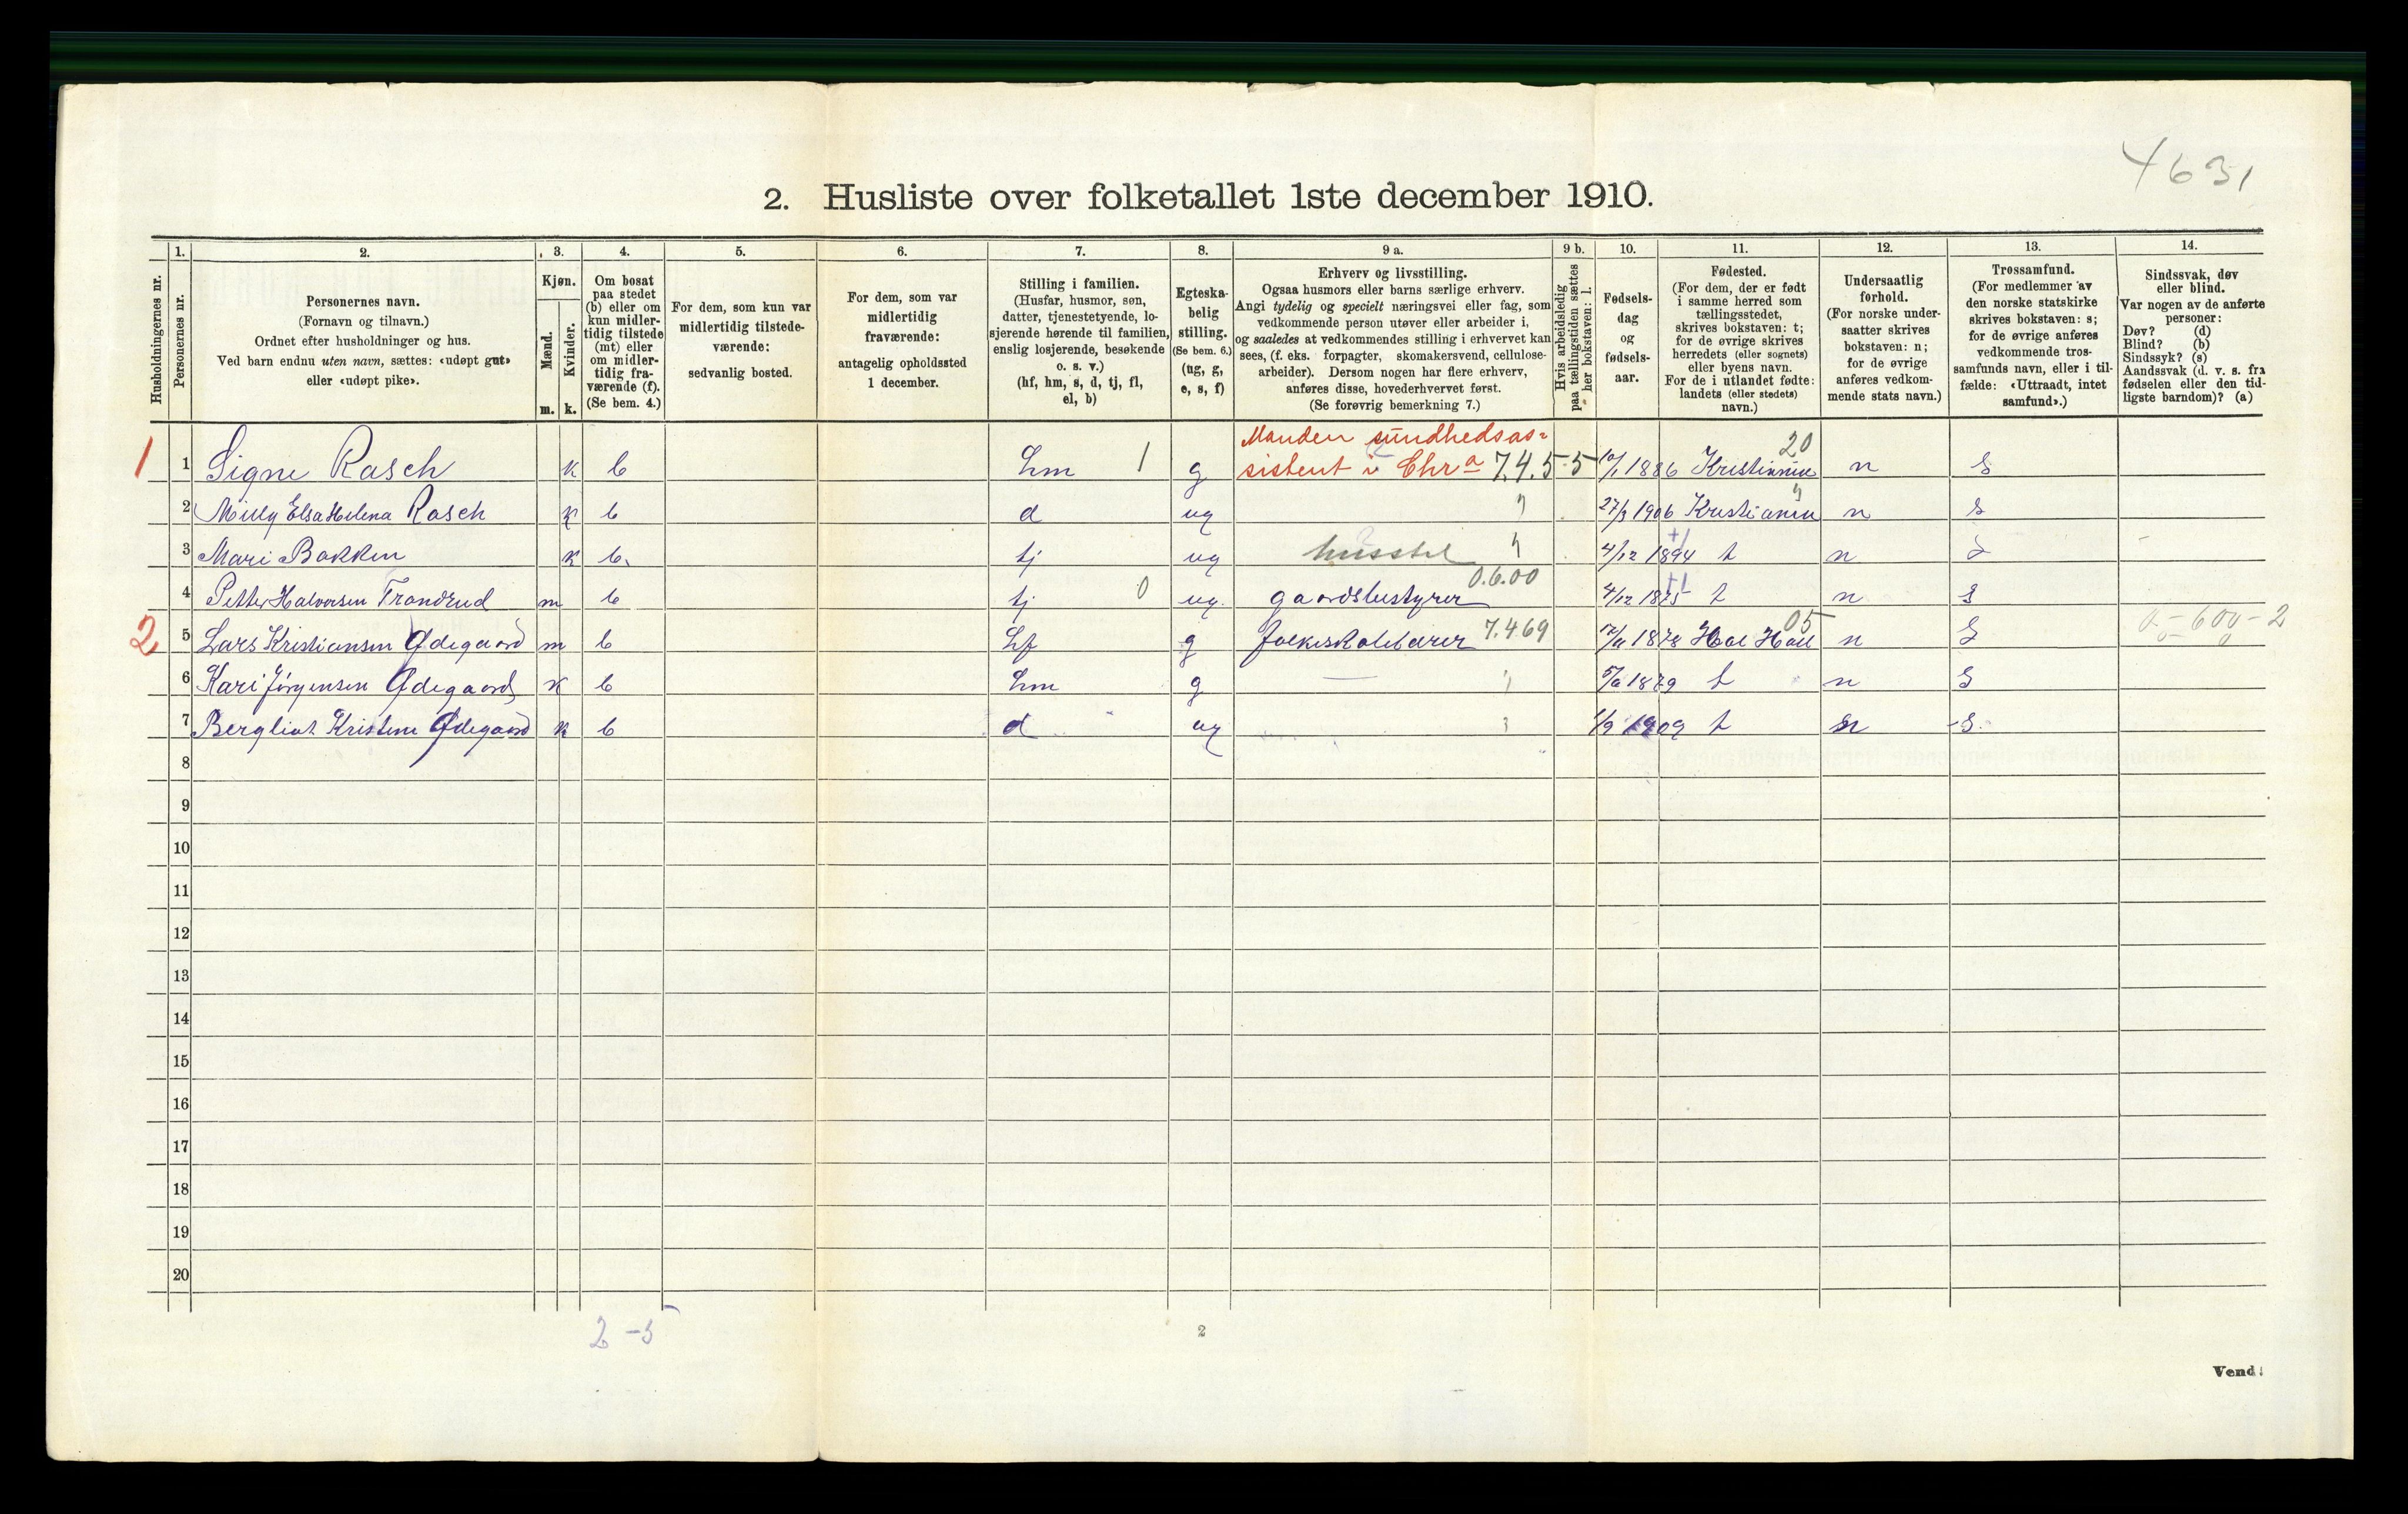 4631
2. Husliste over folketallet 1ste december 1910.
Husholdningernes nr.
1. Personernes nr.
2. Personernes navn. (Fornavn og tilnavn.) Ordnet efter husholdninger og hus. Ved barn endnu uten navn, sættes: «udøpt gut» eller «udøpt pike».
3. Kjøn. Mænd. m. Kvinder. k.
4. Om bosat paa stedet (b) eller om kun midlertidig tilstede (mt) eller om midlertidig fraværende (f). (Se bem. 4.)
5. For dem, som kun var midlertidig tilstedeværende: sedvanlig bosted.
6. For dem, som var midlertidig fraværende: antagelig opholdssted 1 december.
7. Stilling i familien. (Husfar, husmor, søn, datter, tjenestetyende, losjerende hørende til familien, enslig losjerende, besøkende o. s. v.) (hf, hm, s, d, tj, fl, el, b)
8. Egteskabelig stilling. (Se bem. 6.) (ug, g, e, s, f)
9 a. Erhverv og livsstilling. Ogsaa husmors eller barns særlige erhverv. Angi tydelig og specielt næringsvei eller fag, som vedkommende person utøver eller arbeider i, og saaledes at vedkommendes stilling i erhvervet kan sees, (f. eks. forpagter, skomakersvend, cellulosearbeider). Dersom nogen har flere erhverv, anføres disse, hovederhvervet først. (Se forøvrig bemerkning 7.)
9 b. Hvis arbeidsledig paa tællingstiden sættes her bokstaven: l.
10. Fødselsdag og fødselsaar.
11. Fødested. (For dem, der er født i samme herred som tællingsstedet, skrives bokstaven: t; for de øvrige skrives herredets (eller sognets) eller byens navn. For de i utlandet fødte: landets (eller stedets) navn.)
12. Undersaatlig forhold. (For norske undersaatter skrives bokstaven: n; for de øvrige anføres vedkommende stats navn.)
13. Trossamfund. (For medlemmer av den norske statskirke skrives bokstaven: s; for de øvrige anføres vedkommende trossamfunds navn, eller i tilfælde: «Uttraadt, intet samfund».)
14. Sindssvak, døv eller blind. Var nogen av de anførte personer: Døv? (d) Blind? (b) Sindssyk? (s) Aandssvak (d. v. s. fra fødselen eller den tidligste barndom)? (a)
1 1 Signe Rasch k b hm 1 g Manden sundhedsassistent i Chr a 7.4.5-5 10/1 1886 Kristiania 20 n s
2 Milly Elsa Helena Rasch k b d ug " 27/3 1906 Kristiania " n s
3 Mari Bakken k b. tj ug husstel " 4/12 1894 t n s
4 Petter Halvorsen Trondrud m b tj 0 ug. gaardsbestyrer 0.6.00 4/12 1875 t n s
2 5 Lars Kristiansen Ødegaard m b hf g folkeskolelærer 7.469 1878 Hol Hall 05 n s 0-600-2
6 Kari Jørgensen Ødegaard k b hm g — " 1879 t n s
7 Bergliot Kristine Ødegaard k b d ug 1/9 1909 t n s.
8
9
10
11
12
13
14
15
16
17
18
19
20
2-5
2
Vend!